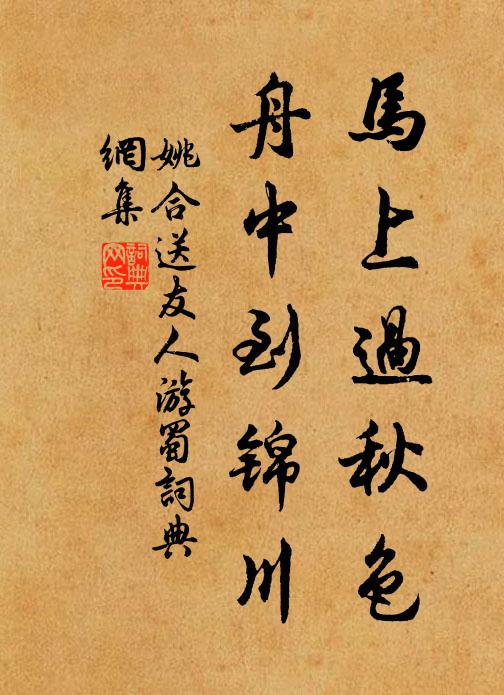 馬上過秋色
舟中到锦川
姚合送友人游蜀詞典
網集
詞典
网印